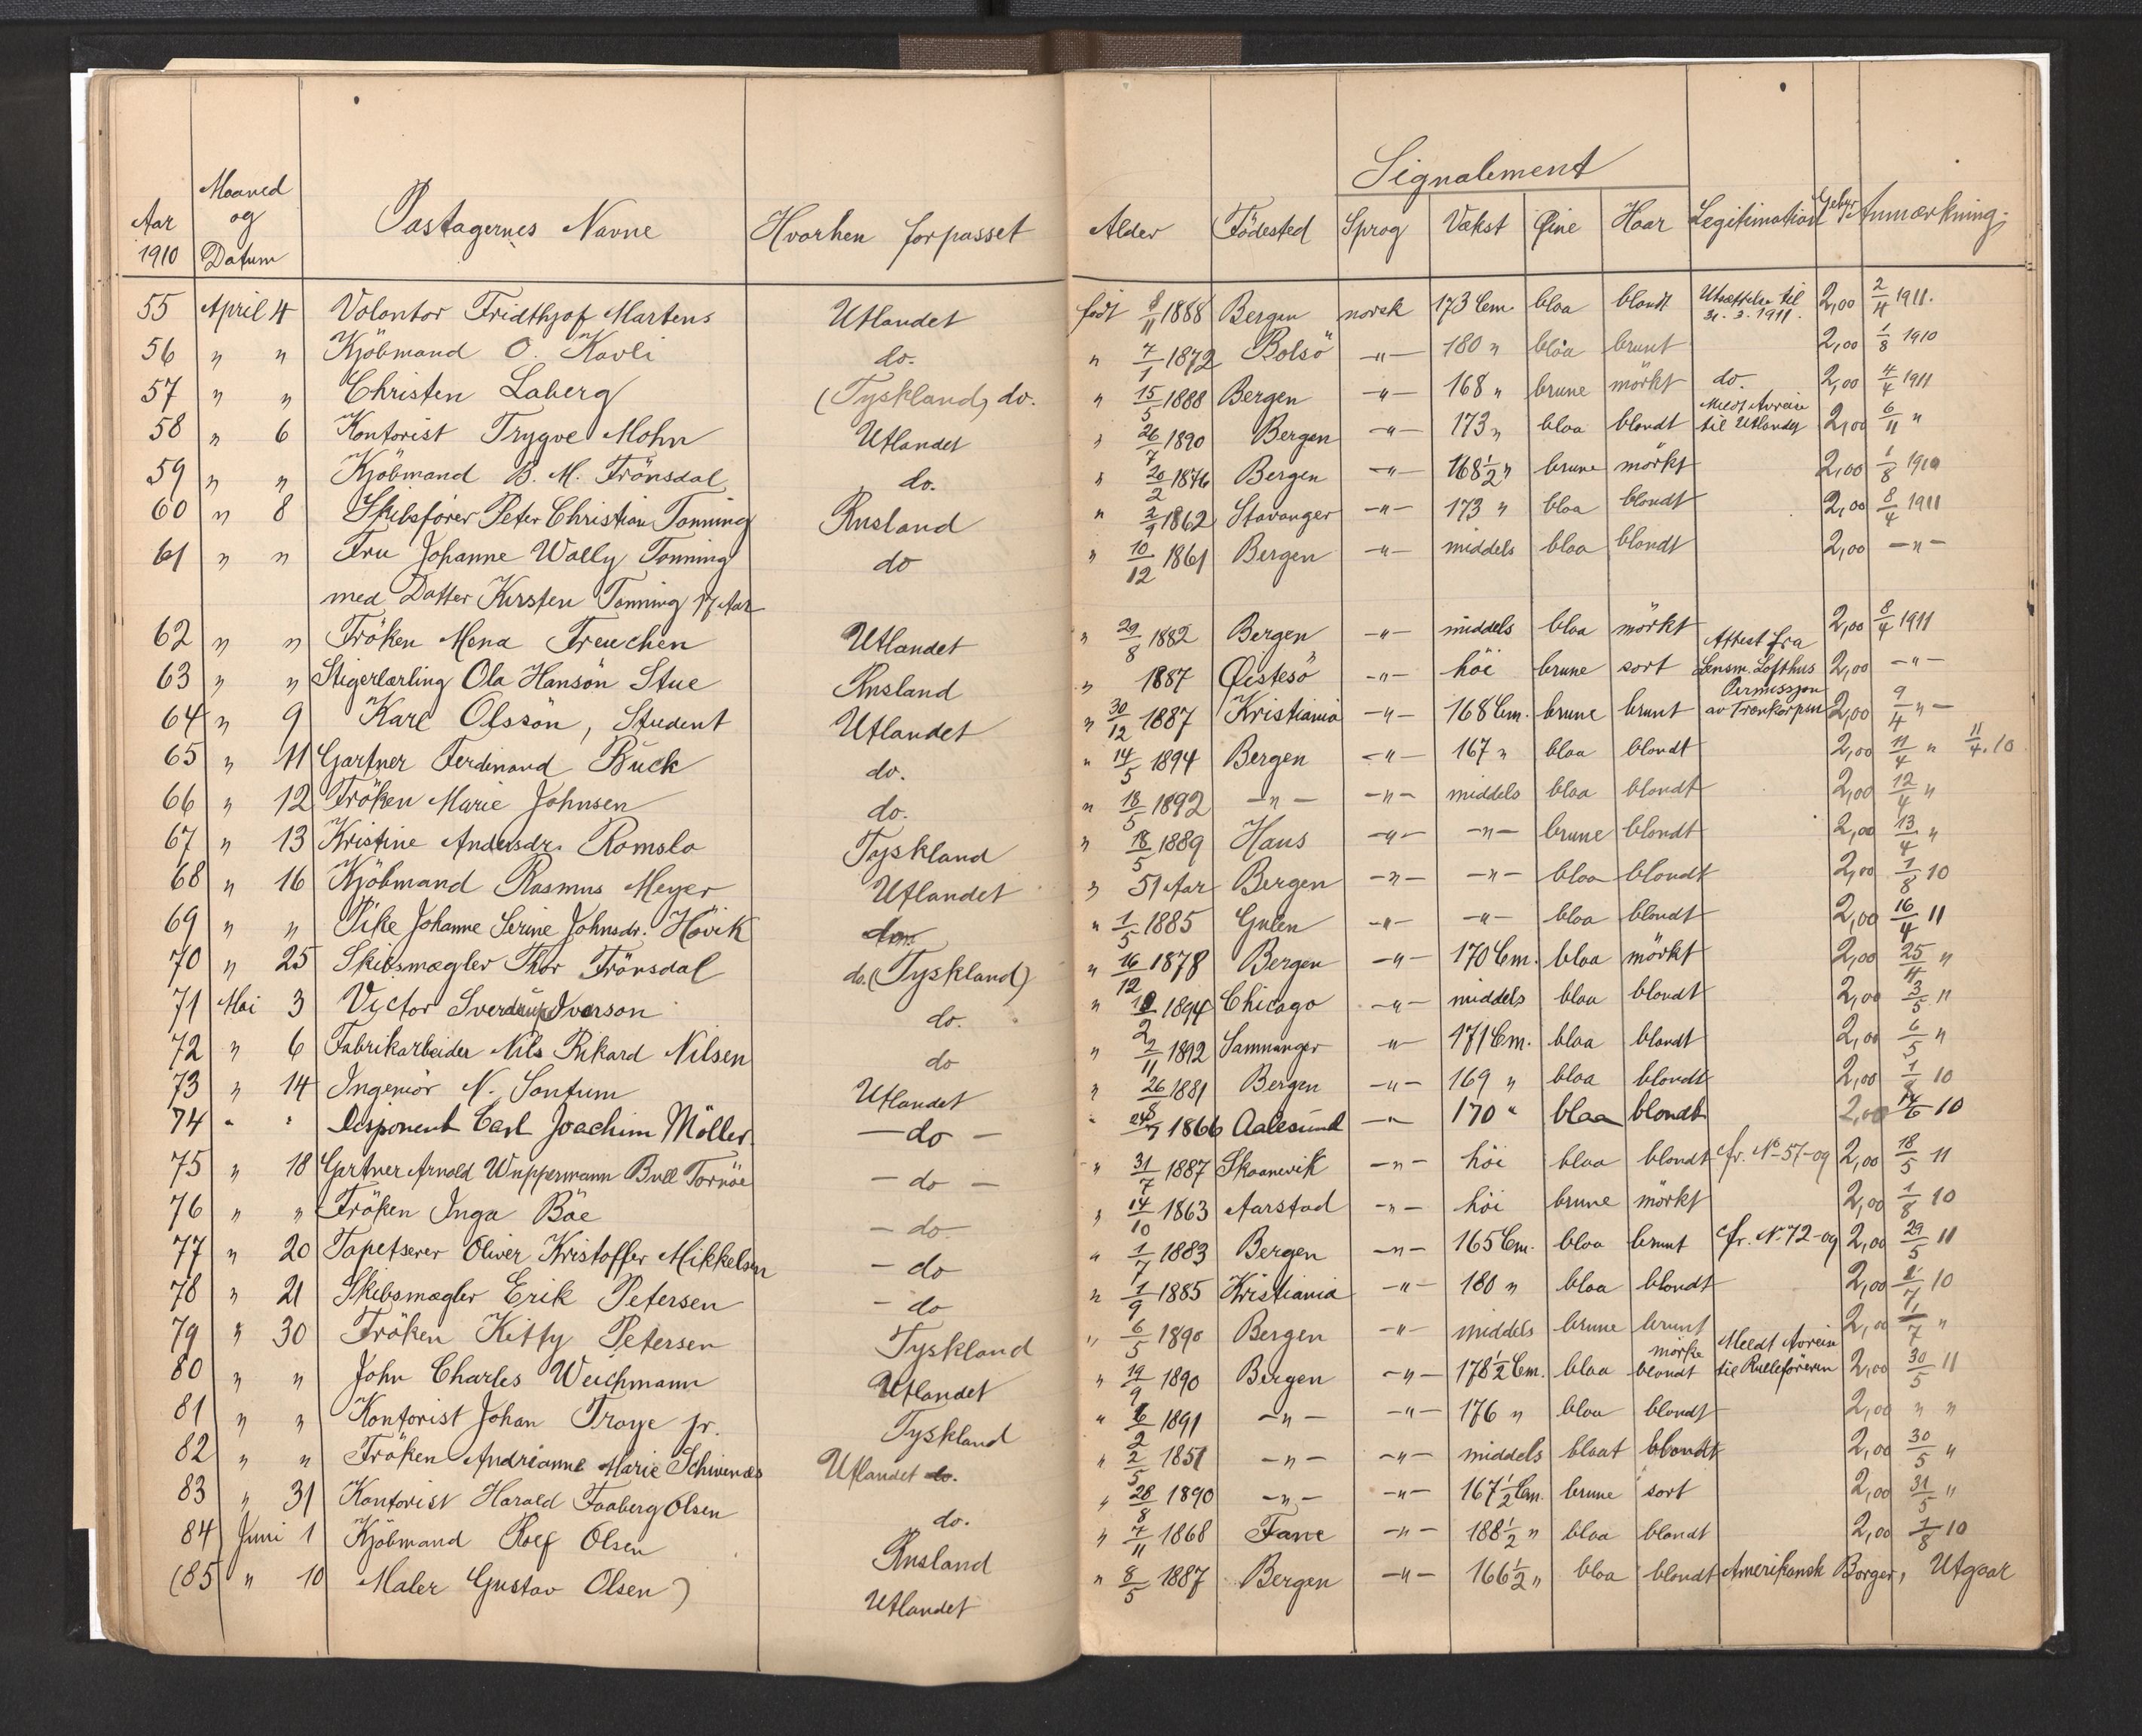 Signalement
Aar 1910 Maaned og Datum Pastagernes Navne Hvorhen forpasset Alder Födested Sprog Vækst Øine Haar Legitimation Gebyr Anmærkning.
55 April 4 Volontör Fridthjof Martens Utlandet født 8/11 1888 Bergen norsk 173 Cm. blaa blondt Utsættelse til 31.3.1911. 2,00 2/4 1911.
56 " " Kjöbmand O. Kavli do. " 7/1 1872 Bolsö -"- 180 " blaa brunt 2,00 1/8 1910
57 " " Christen Laberg (Tyskland) do. " 15/5 1888 Bergen -"- 168 " brune mörkt do. 2,00 4/4 1911
58 " 6 Kontorist Trygve Mohn Utlandet " 26/7 1890 Bergen -"- 173 " blaa blondt Meldt Avreise til Utlandet 2,00 6/11 "
59 " " Kjöbmand B. M. Frönsdal do. " 20/2 1876 Bergen -"- 168 1/2 " brune mörkt 2,00 1/8 1910
60 " 8 Skibsförer Peter Christian Tonning Rusland " 2/9 1862 Stavanger -"- 173 " blaa blondt 2,00 8/4 1911
61 " " Fru Johanne Wally Tonning do " 10/12 1861 Bergen -"- middels blaa blondt 2,00 -"-
med Datter Kirsten Tonning 17 Aar
62 " " Fröken Mena Freuchen Utlandet " 29/8 1882 Bergen -"- middels blaa mörkt 2,00 8/4 1911
63 " " Stigerlærling Ola Hansön Stue Rusland " 1887 Øistesö -"- höi brune sort Attest fra Lensm. Lofthus 2,00 -"-
64 " 9 Karl Olssön, Student Utlandet " 30/12 1887 Kristiania -"- 168 Cm. brune brunt Permission av Trænkorpset 2,00 9/4 " -
65 " 11 Gartner Ferdinand Buck do. " 14/5 1894 Bergen -"- 167 " blaa blondt 2,00 11/4 " 11/4.10
66 " 12 Fröken Marie Johnsen do. " 18/5 1892 -"- -"- middels blaa blondt 2,00 12/4 "
67 " 13 Kristine Andersdr. Romslo Tyskland " 18/5 1889 Haus -"- -"- brune blondt 2,00 13/4 "
68 " 16 Kjöbmand Rasmus Meyer Utlandet " 51 Aar Bergen -"- -"- blaa blondt 2,00 1/8 10
69 " " Pike Johanne Serine Johnsdr. Hövik do " 1/5 1885 Gulen -"- -"- blaa blondt 2,00 16/4 11
70 " 25 Skibsmægler Thor Frönsdal do. (Tyskland) " 16/12 1878 Bergen -"- 170 Cm. blaa mörkt 2,00 25/4 "
71 Mai 3 Victor Sverdrup Iverson do. " 10/2 1894 Chicago -"- middels blaa blondt 2,00 3/5 11
72 " 6 Fabrikarbeider Nils Rikard Nilsen do " 2/11 1892 Samnanger -"- 171 Cm. blaa blondt 2,00 6/5 "
73 " 14 Ingeniör N. Sontum Utlandet " 26/8 1881 Bergen -"- 169 " blaa blondt 2,00 1/8 10
74 " " Disponent Carl Joachim Möller -do- " 24/7 1866 Aalesund -"- 170 " blaa blondt 2,00 14/6 10
75 " 18 Gartner Arnold Wuppermann Bull Tornöe -do- " 31/7 1887 Skaanevik -"- höi blaa blondt cfr. No 57-09 2,00 18/5 11
76 " " Fröken Inga Böe -do- " 14/10 1863 Aarstad -"- höi brune mörkt 2,00 1/8 10
77 " 20 Tapetserer Oliver Kristoffer Mikkelsen - do " 1/7 1883 Bergen -"- 165 Cm. blaa brunt cfr. No. 72-09 2,00 29/5 11
78 " 21 Skibsmægler Erik Petersen - do " 1/9 1885 Kristiania -"- 180 " blaa blondt 2,00 1/7 10
79 " 30 Fröken Kitty Petersen Tyskland " 6/5 1890 Bergen -"- middels brune brunt 2,00 1/7 "
80 " " John Charles Weichmann Utlandet " 19/9 1890 Bergen -"- 178 1/2 Cm. blaa mörke blondt Meldt Avreise til Rulleföreren 2,00 30/5 11
81 " " Kontorist Johan Troye jr. Tyskland " 6/2 1891 -"- -"- 176 " blaa blondt 2,00 " "
82 " " Fröken Andrianne Marie Schivenæs Utlandet do. " 2/5 1851 -"- -"- middels blaat blondt 2,00 30/5 "
83 " 31 Kontorist Harald Faaberg Olsen do. " 28/8 1890 -"- -"- 167 1/2 Cm. brune sort 2,00 31/5 "
84 Juni 1 Kjöbmand Rolf Olsen Rusland " 7/11 1868 Fane -"- 188 1/2 " blaa blondt 2,00 1/8 10
(85 " 10 Maler Gustav Olsen) Utlandet " 8/5 1887 Bergen -"- 166 1/2 " blaa blondt Amerikansk Borger, Utgaar